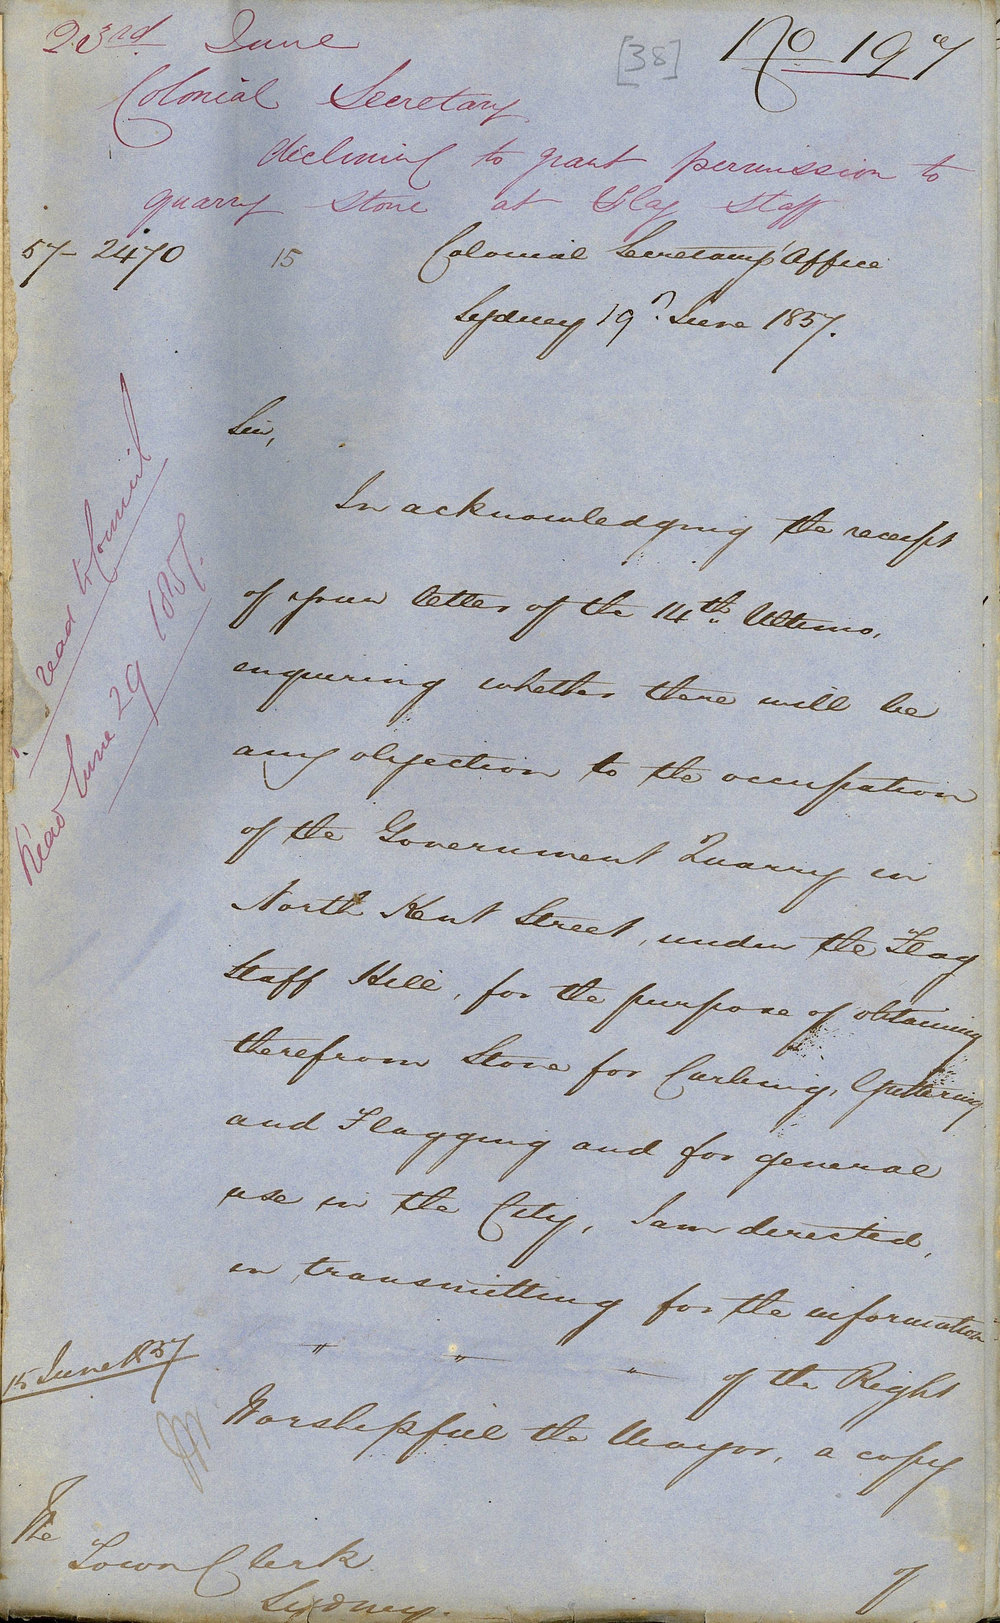 23rd June
[38]
No 197
Colonial Secretary
declining to grant permission to
quarry stone at Flag Staff
57-2470
15
Colonial Secretary's Office
Sydney 19th June 1857.
Sir,
In acknowledging the receipt
of your letter of the 14th Ultimo,
enquiring whether there will be
any objection to the occupation
of the Government Quarry in
North Kent Street, under the Flag
Staff Hill, for the purpose of obtaining
therefrom Stone for Curbing, Guttering
and Flagging and for general
use in the City, I am directed,
in transmitting for the information
" " " of the Right
Worshipful the Mayor, a copy
of
read to Council
Read June 29 1857.
15 June 1857
The
Town Clerk
Sydney.